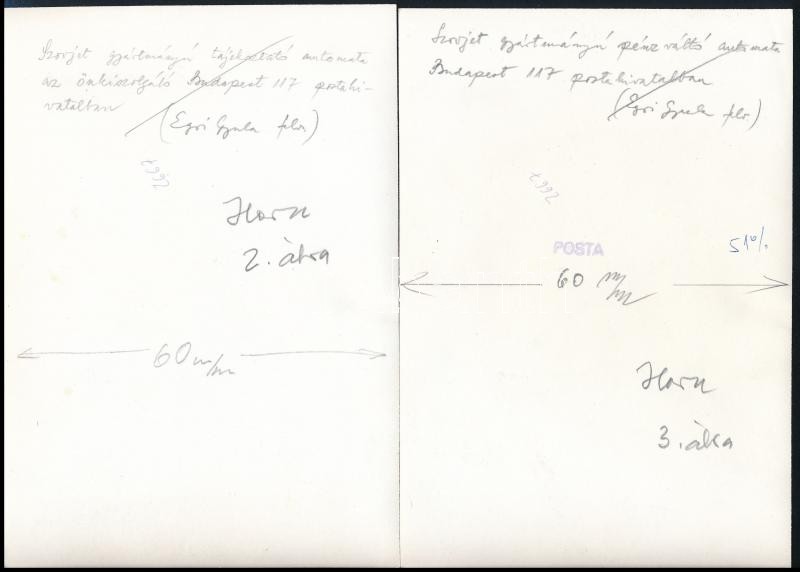 Szovjet gyártmányú tájékoztató automata
az önkiszolgáló Budapest 117 postahi-
vatalban
(Egri Gyula felv.)
t.992
Horn
2. ábra
60 m/m
Szovjet gyártmányú pénzváltó automata
Budapest 117 postahivatalban
(Egri Gyula felv.)
t.992
POSTA
51%
60 m/m
Horn
3. ábra